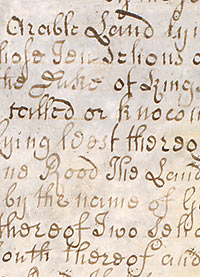 of the
Arable Land ly
hole Ten Selions o
the Duke of King
called or knocon
lying West thereo
ne Rood The Land
by the name of G
thereof Two Selio
outh thereof and